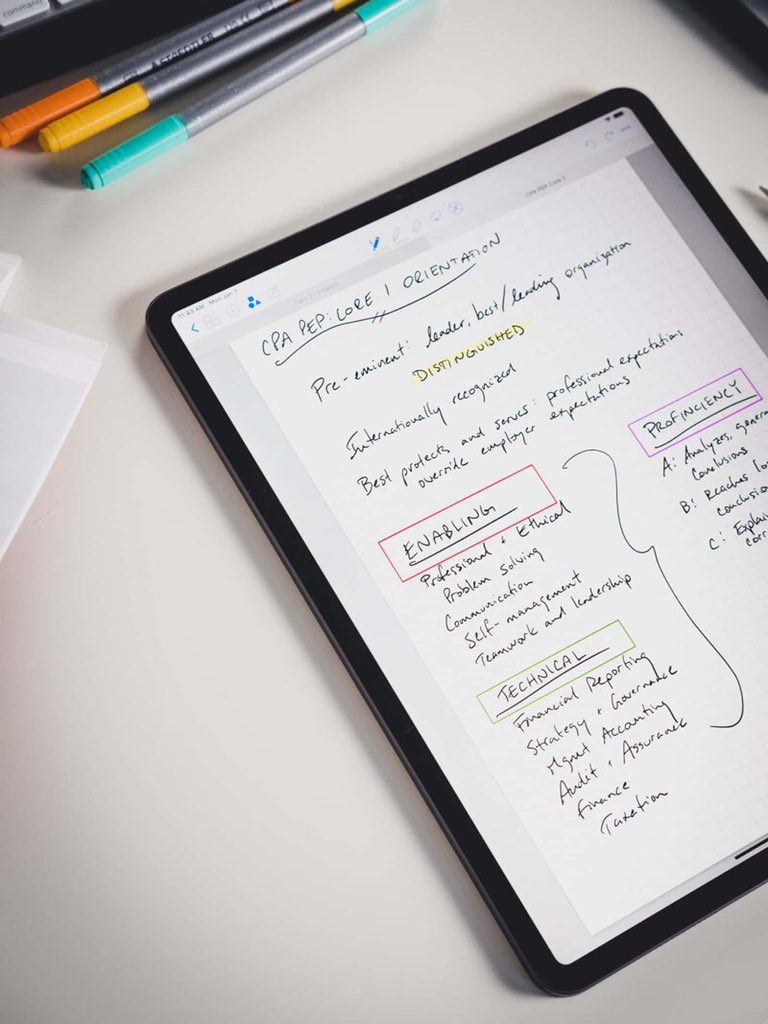 command
STAEDTLER
11:43 AM Mon Jan 7
CPA PEP Core 1
CPA PEP: CORE 1 ORIENTATION
Pre-eminent: leader, best/leading organization
DISTINGUISHED
Internationally recognized
Best protects and serves: professional expectations
override employer expectations
ENABLING
Professional + Ethical
Problem Solving
Communication
Self-management
Teamwork and leadership
TECHNICAL
Financial Reporting
Strategy + Governance
Mgmt Accounting
Audit + Assurance
Finance
Taxation
PROFINCIENCY
A: Analyzes,
Conclusions
B: Reaches
C: